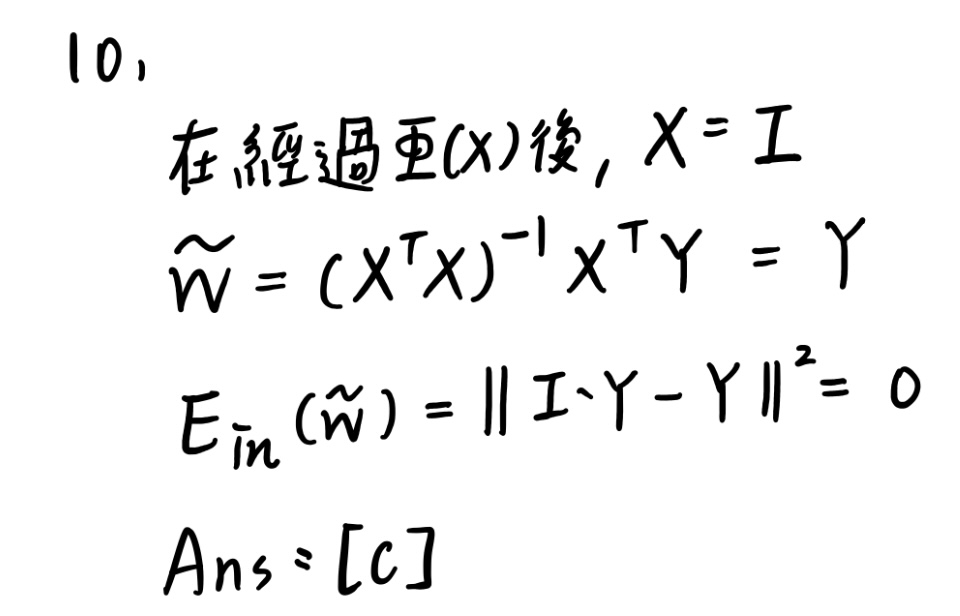 10.
在經過亜(X)後, X = I
w̃ = (XᵀX)⁻¹ XᵀY = Y
E_in (w̃) = ‖ I·Y - Y ‖² = 0
Ans : [C]